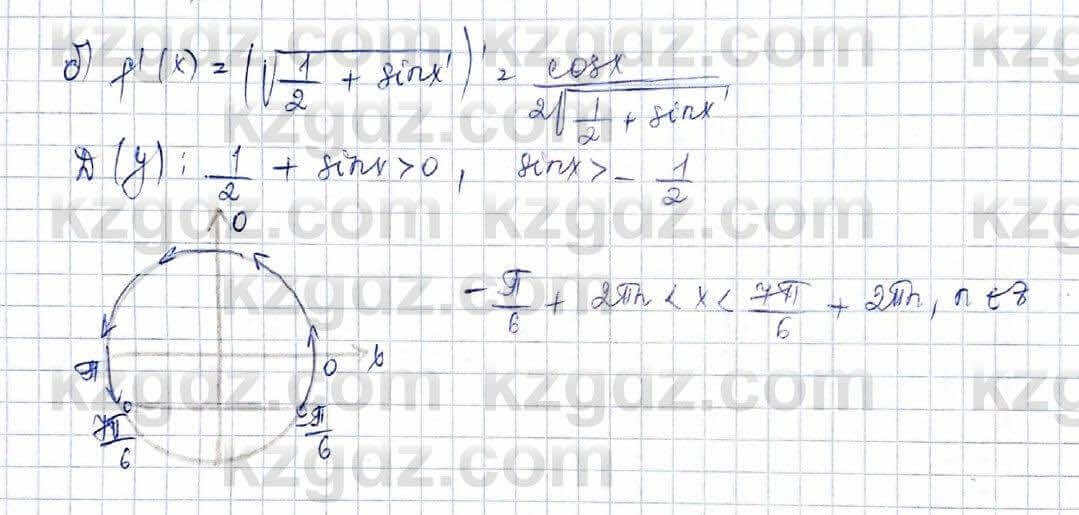 б) f'(x) = (√(1/2 + sinx))' = cosx / 2√(1/2 + sinx)
Д(y): 1/2 + sinx > 0, sinx > - 1/2
0
- π/6 + 2πn < x < 7π/6 + 2πn, n ∈ Z
π 0 x
7π/6 -π/6
kzgdz.com